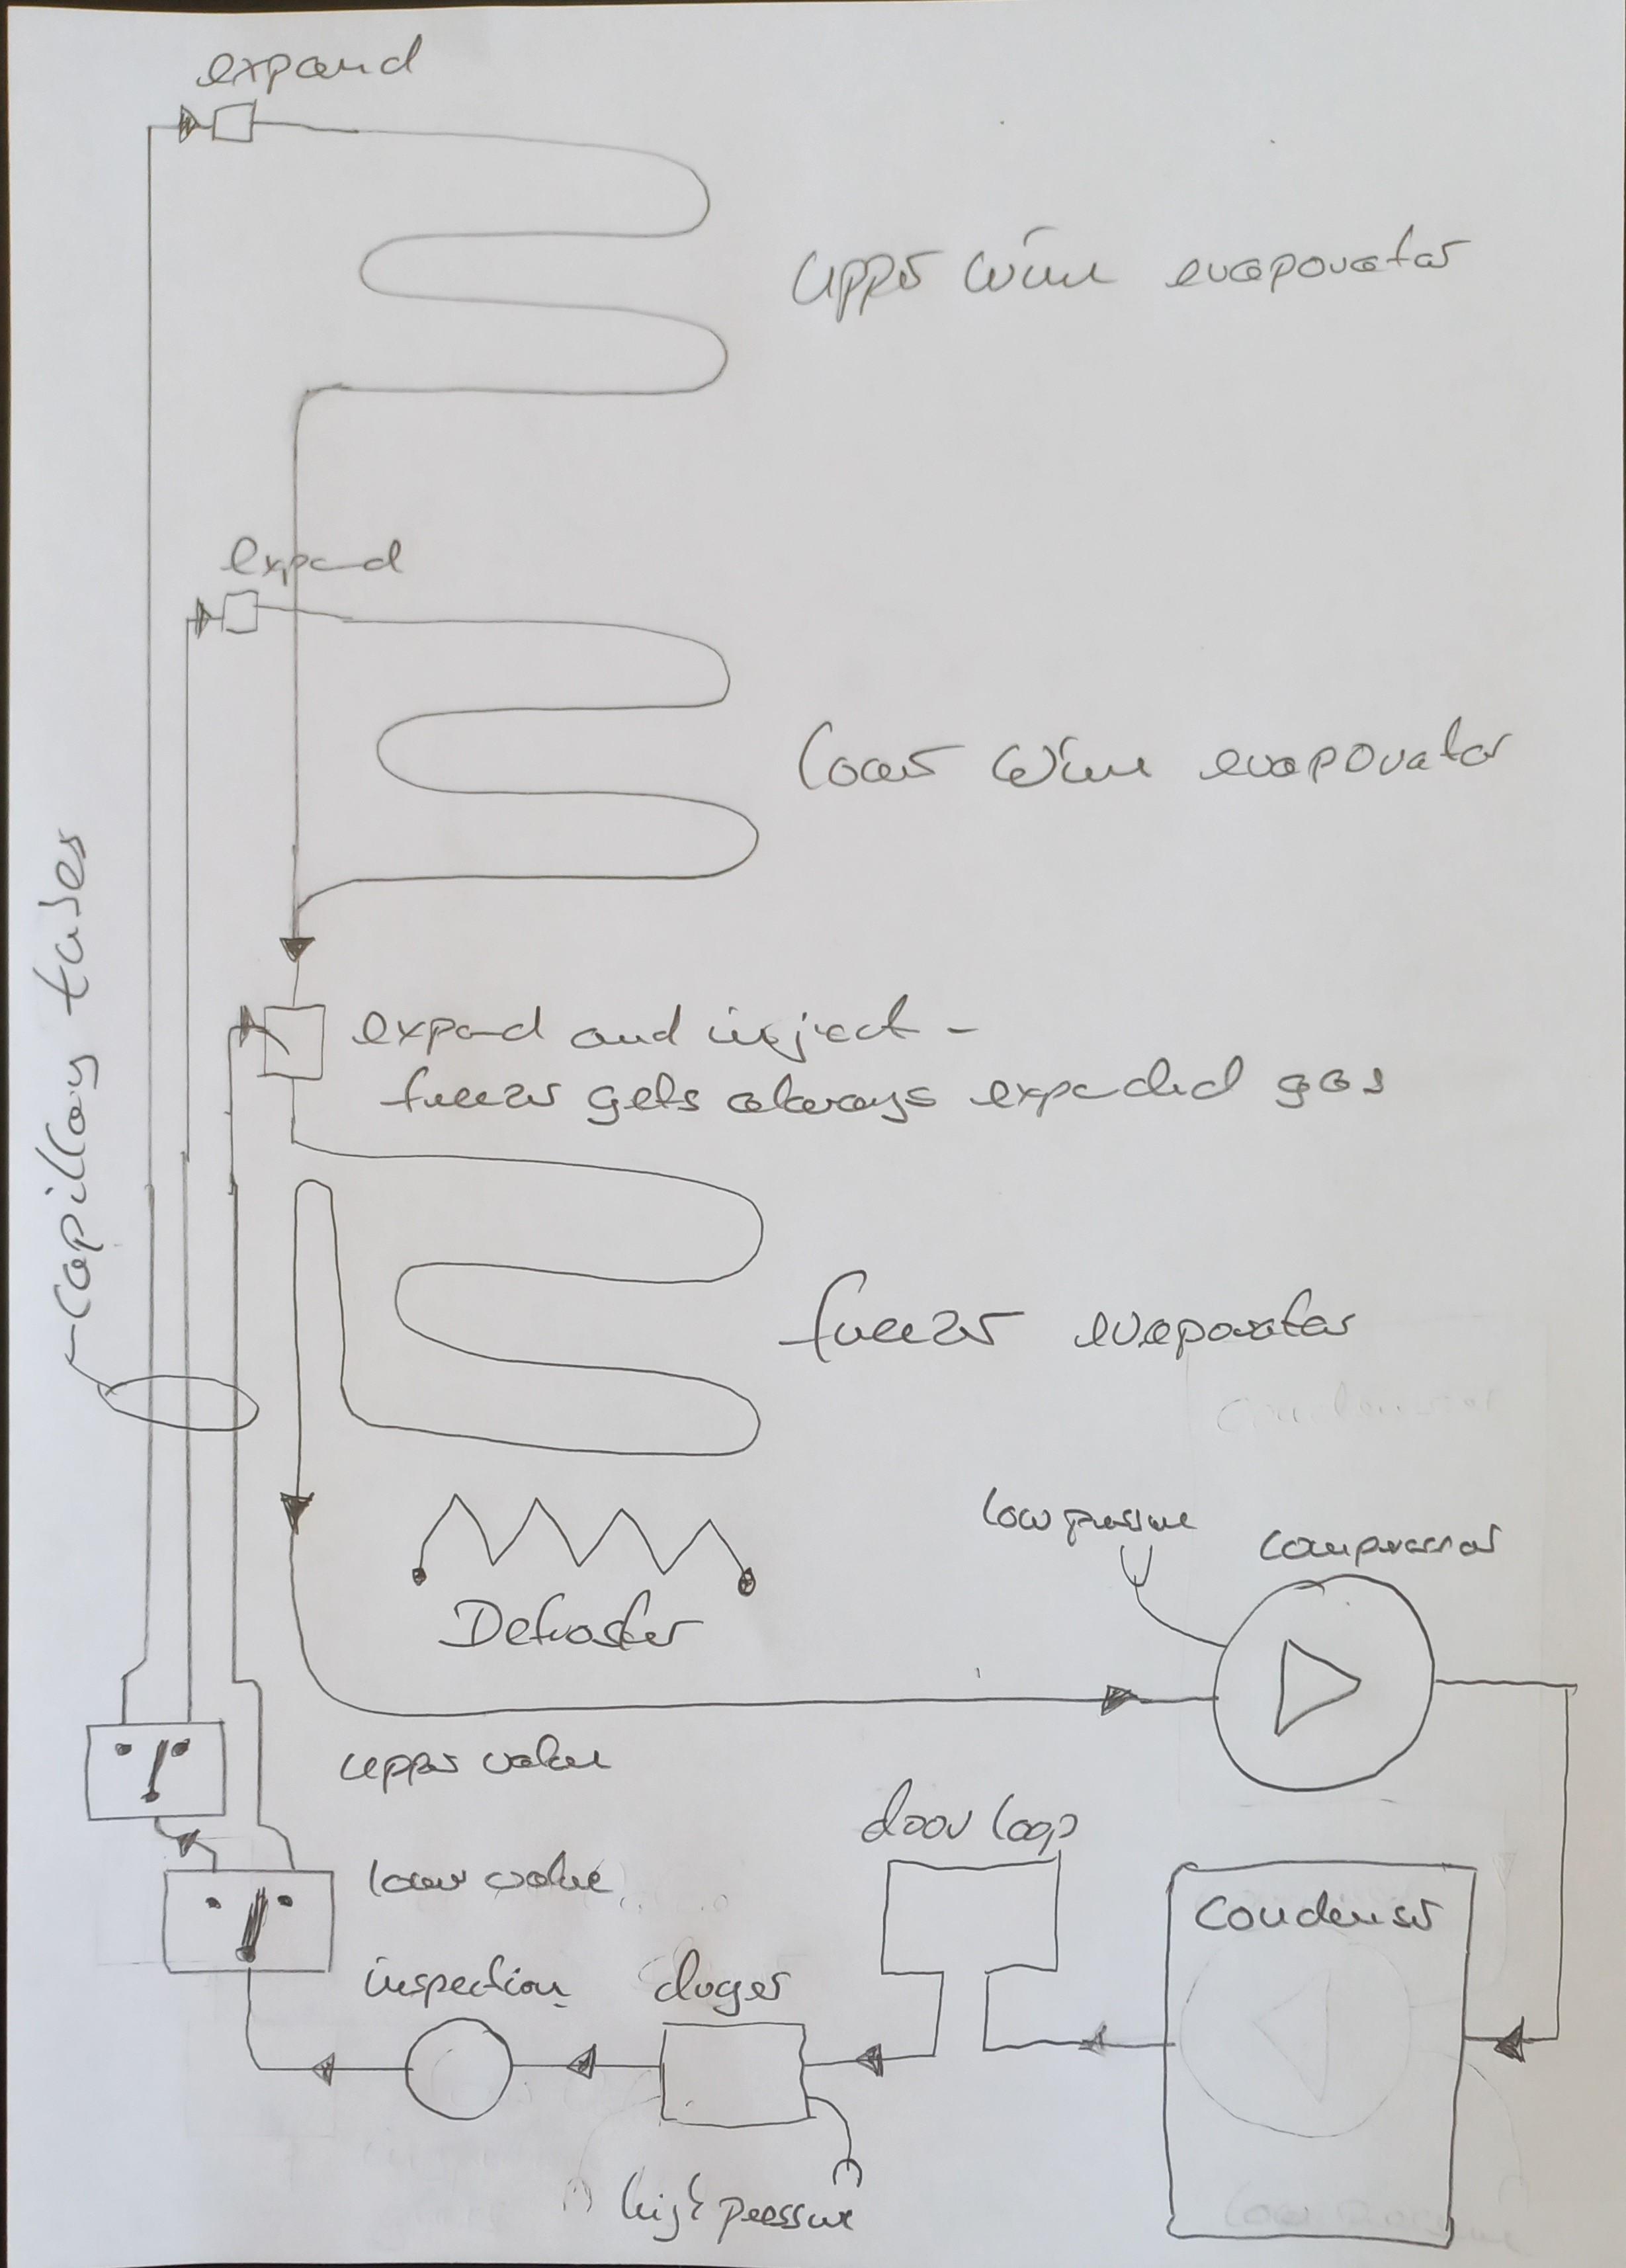 expand
upper wine evaporator
expand
lower wine evaporator
capillary tubes
expand and inject -
freezer gets always expanded gas
freezer evaporator
low pressure
compressor
Defroster
upper valve
door loop
lower valve
Condenser
inspection
high pressure